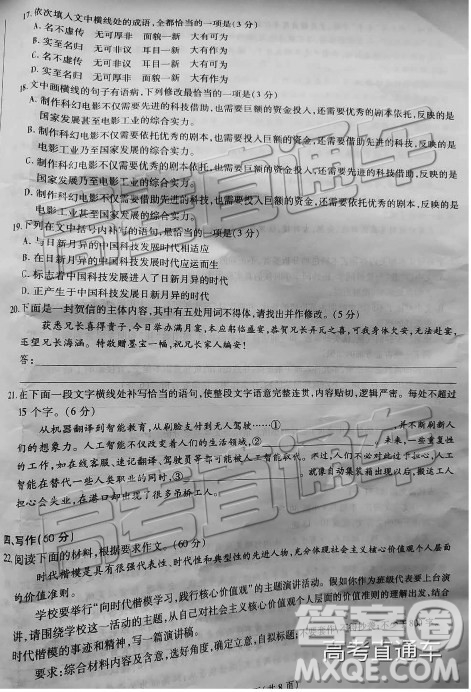 17.依次填入文中横线处的成语,全都恰当的一项是(3分)
A. 名不虚传 无可厚非 面貌一新 大有可为
B. 实至名归 无可非议 耳目一新 大有作为
C. 名不虚传 无可非议 耳目一新 大有可为
D. 实至名归 无可厚非 面貌一新 大有作为
18.文中画横线的句子有语病,下列修改最恰当的一项是(3分)
A.制作科幻电影不仅需要先进的科技借助,也需要巨额的资金投入,还需要优秀的剧本依托,反映的是
国家发展甚至电影工业的综合实力。
B.制作科幻电影不仅需要优秀的剧本依托,也需要投入巨额的资金,还需要借助先进的科技,反映的是
电影工业乃至国家发展的综合实力。
C.制作科幻电影不仅需要优秀的剧本,也需要巨额的资金投入,还需要先进的科技借助,反映的是
国家发展乃至电影工业的综合实力。
D.制作科幻电影不仅需要借助先进的科技,也需要投入巨额的资金,还需要依托优秀的剧本,反映的是
电影工业甚至国家发展的综合实力。
19.下列在文中括号内补写的语句,最恰当的一项是(3分)
A.与日新月异的中国科技发展时代相适应
B.在日新月异的中国科技发展时代应运而生
C.标志着中国科技发展进入了日新月异的时代
D.正产生于中国科技发展日新月异的时代
20.下面是一封贺信的主体内容,其中有五处用词不得体,请找出并作修改。(5分)
获悉兄长喜得贵子,今日举办满月宴,本应躬临盛宴,恭贺兄长弄瓦之喜,可我大事缠身,无法赴宴,
还望兄长海涵。特敬赠墨宝一幅,祝兄长家人编安!
答:
21.在下面一段文字横线处补写恰当的语句,使整段文字语意完整连贯,内容贴切,逻辑严密。每处不超过
15个字。(6分)
从机器翻译到智能教育,从刷脸支付到无人驾驶……①,并不断刷新人
们的想象力。人工智能不仅改变着人们的生活领域,②。未来,一些重复性
的工作,如在线客服、速记翻译、驾驶员等都可能被人工智能取代。我们大可不必对此过于担心,人工
智能在替代一些人类职业的同时,③。就像自动集装箱出现以后,搬运工人
担心会失业,在港口却出现了很多吊桥工人。
四、写作(60分)
22.阅读下面的材料,根据要求作文。(60分)
时代楷模是具有很强代表性、时代性和典型性的先进人物,充分体现社会主义核心价值观个人层面
的价值准则。
学校要举行“向时代楷模学习,践行核心价值观”的主题演讲活动。假如你作为班级代表要上台演
讲,请围绕学校这一活动的主题,从自己对社会主义核心价值观个人层面的价值准则的理解出发,结合
时代楷模的事迹和精神,写一篇演讲稿。
要求:综合材料内容及含意,选好角度,确定立意,自拟标题;
高考直通车
答案圈
高考直通车
MXQE.COM